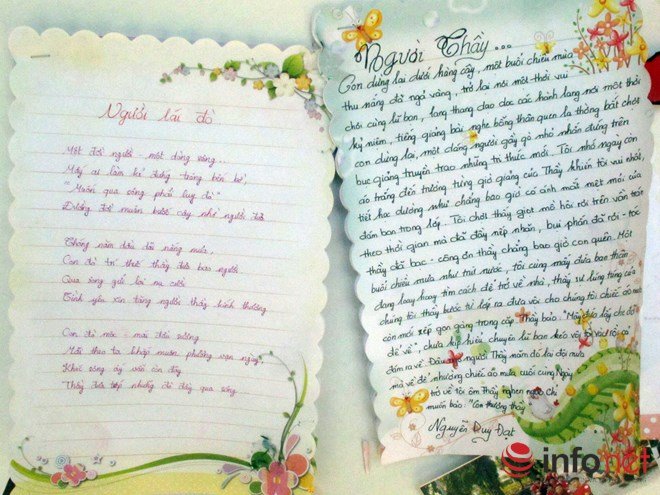 Người lái đò
Một đời người - một dòng sông...
Mấy ai làm kẻ đứng trông bến bờ,
"Muốn qua sông phải luỵ đò"
Đường đời muôn bước cậy nhờ người đưa
Tháng năm dầu dãi nắng mưa,
Con đò trí thức thầy đưa bao người
Qua sông gửi lại nụ cười
Tình yêu xin tặng người thầy kính thương
Con đò mộc - mái đầu sương
Mãi theo ta khắp muôn phương vạn ngày,
Khúc sông ấy vẫn còn đây
Thầy đưa tiếp những đò đầy qua sông
Người Thầy...
Con dừng lại dưới hàng cây, một buổi chiều mùa
thu nắng đổ ngả vàng, trở lại nơi một thời vui
chơi cùng lũ bạn, lang thang dọc các hành lang nơi một thời
kỷ niệm, tiếng giảng bài nghe bỗng thân quen lạ thường bất chợt
con dừng lại, một dáng người gầy gò nhỏ nhắn đứng trên
bục giảng truyền trao những tri thức mới. Tôi nhớ ngày còn
áo trắng đến trường từng giờ giảng của Thầy khiến tôi vui nhất,
tiết học dường như chẳng bao giờ có ánh mắt mệt mỏi của
đám bạn trong lớp. Tôi chợt thấy giọt mồ hôi rơi trên vầng trán
theo thời gian mà đã đầy nếp nhăn, bụi phấn đã rơi - tóc
thầy đã bạc - công ơn thầy chẳng bao giờ con quên. Một
buổi chiều mưa như trút nước, tôi cùng mấy đứa bạn thân
đang loay hoay tìm cách để trở về nhà, thấy sự lúng túng của
chúng tôi thầy bước từ lớp ra đưa vội cho chúng tôi chiếc áo mưa
còn mới xếp gọn gàng trong cặp. Thầy bảo: "Mấy đứa lấy che đỡ
để về", chưa kịp hiểu chuyện lũ bạn kéo vội tôi
đám ra về. Đằng người Thầy năm đó lại đội mưa
mà về để nhường chiếc áo mưa cuối cùng. Ngày
trở về tôi ôm Thầy nghẹn ngào. Chỉ
muốn bảo: "Con thương thầy"
Nguyễn Duy Đạt
infonet